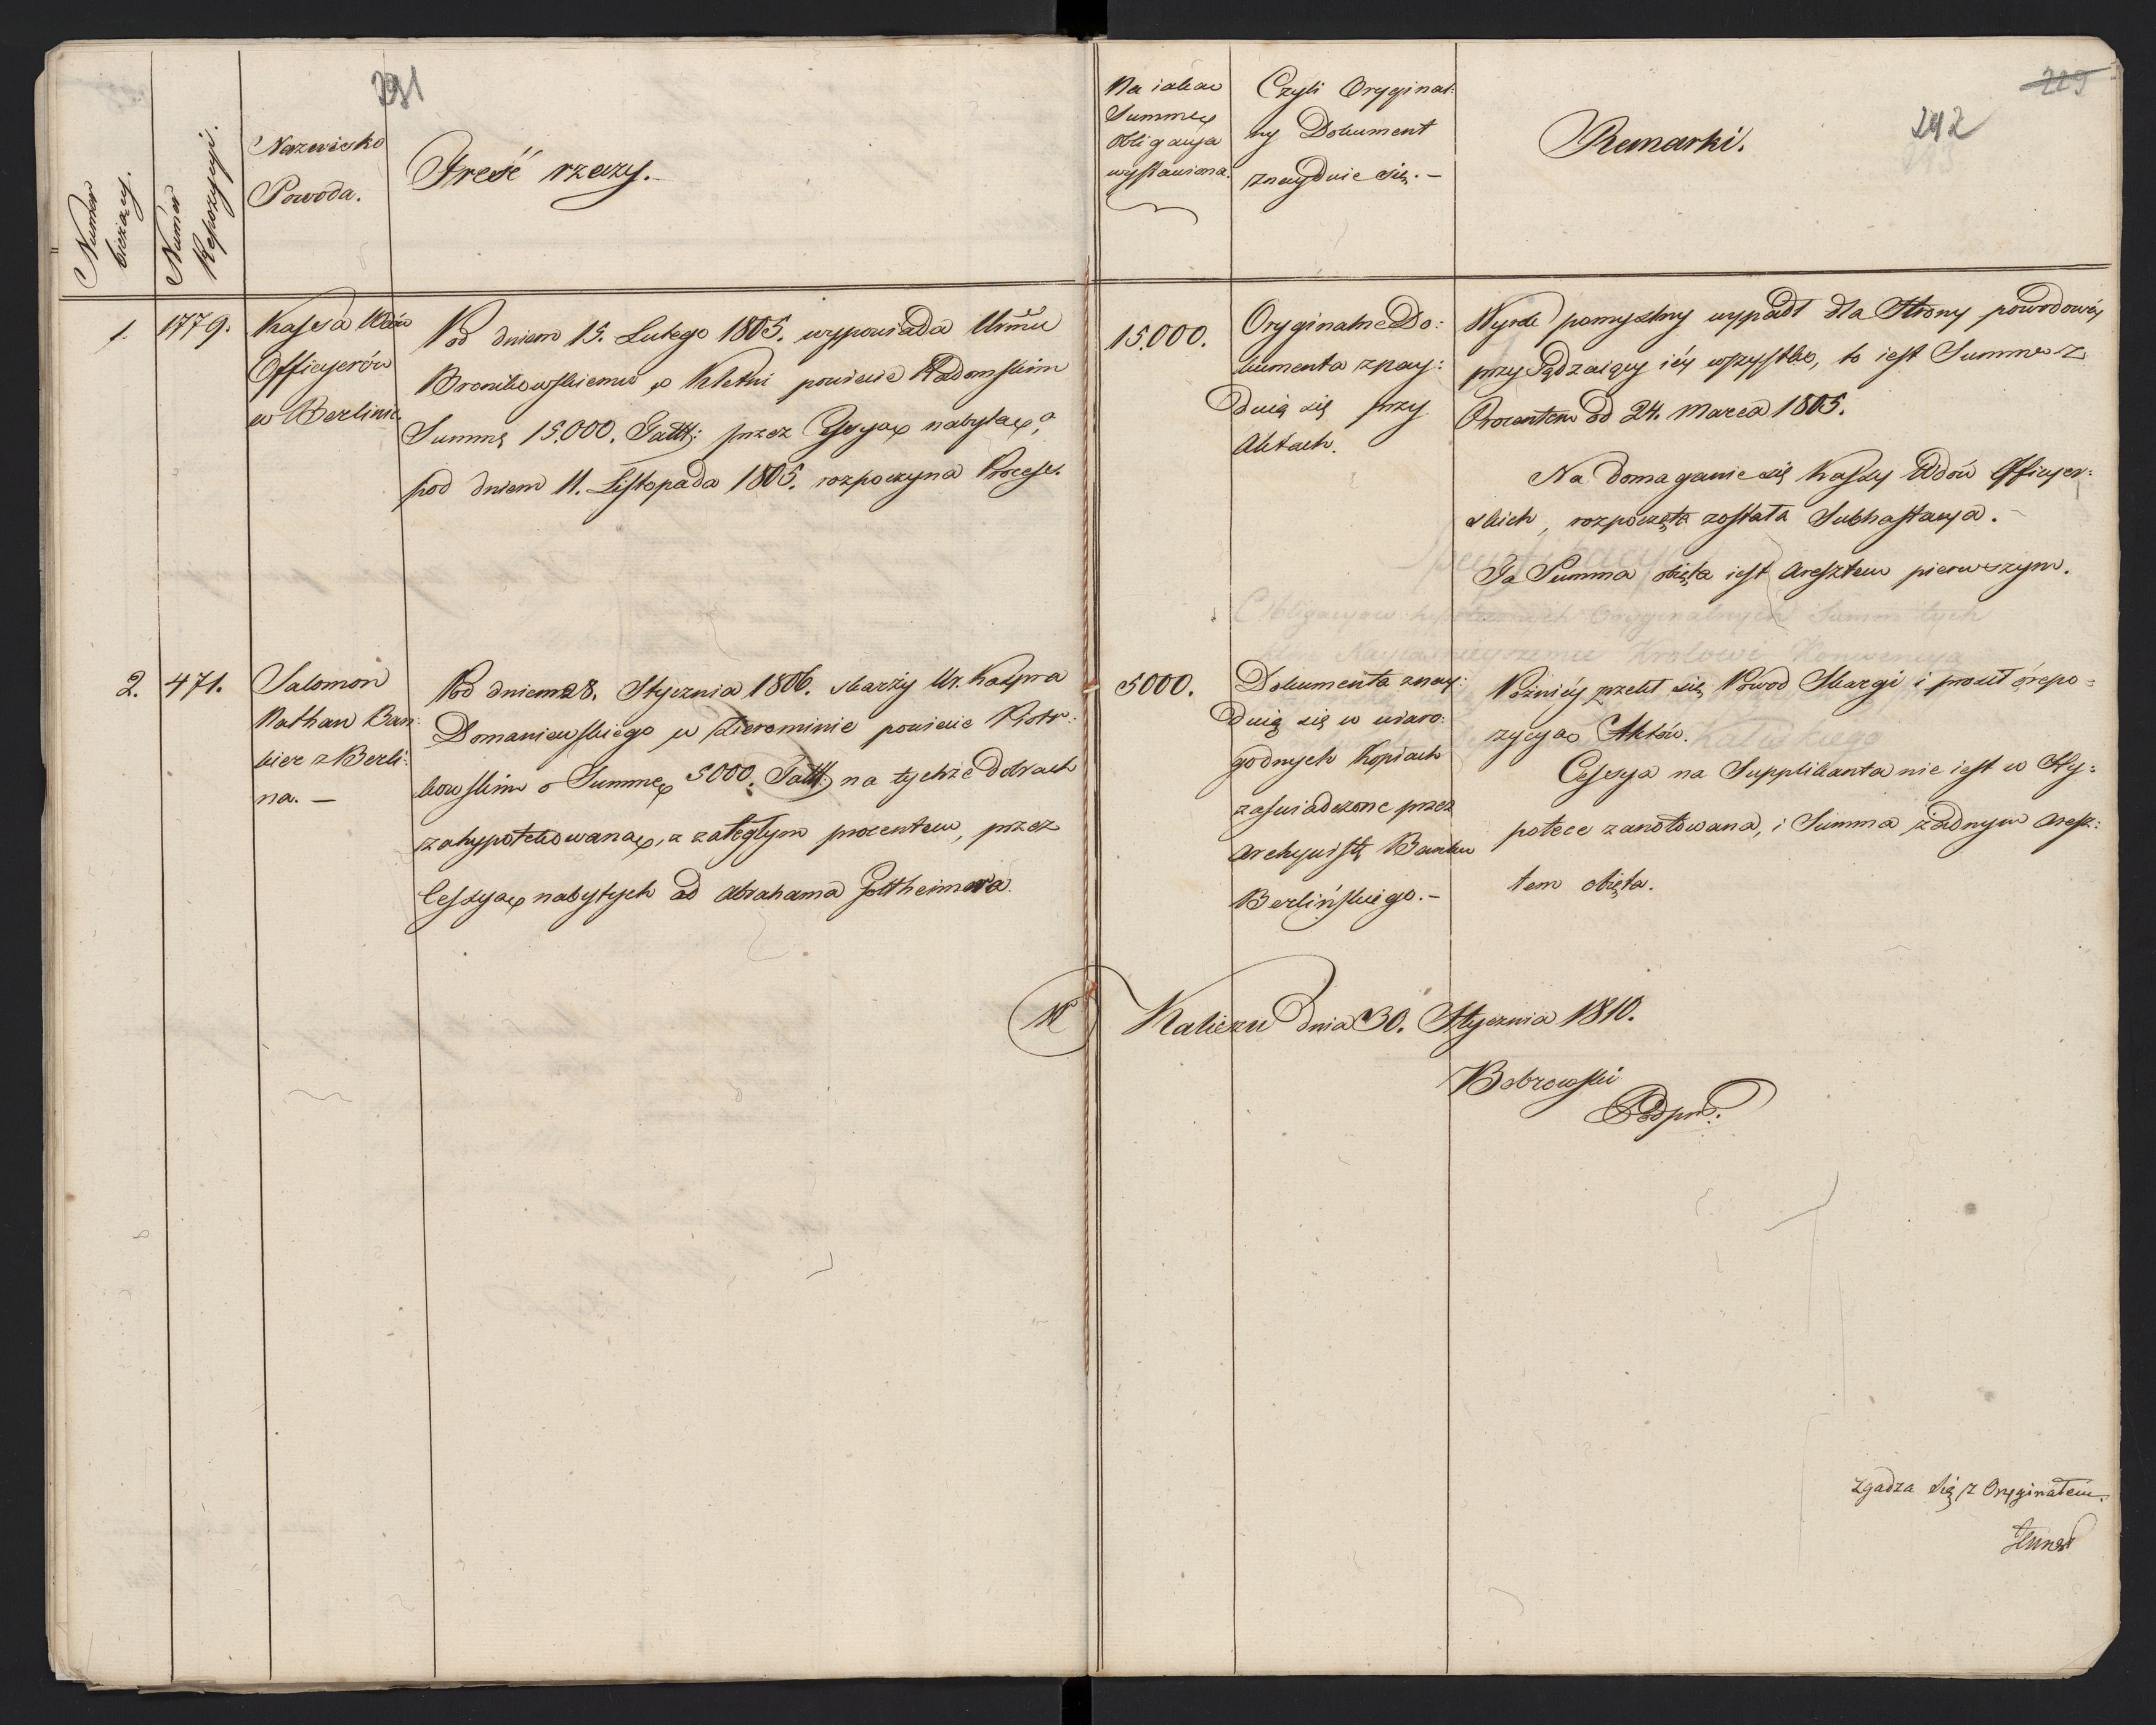 291
229
292
Numer
bieżący.
Numer
Repozycyi.
Nazwisko
Powoda.
Treść rzeczy.
Na iakąć
Summę
Obligacya
wystawiona.
Czyli Oryginal:
ny Dokument
znayduie się. –
Remarki.
1.
1779.
Kassa Wdów
Officyerów
w Berlinie
Pod dniem 15. Lutego 1805. wypowiada Urmu
Bronikowskiemu w Kletni powiecie Radomskim
Summę 15.000. Talll: przez Cessyą nabytą, a
pod dniem 11. Listopada 1805. rozpoczyna Process.
15.000.
Oryginalne Do:
kumenta znay:
duią się przy
Aktach.
Wyrok pomyslny wypadł dla Strony powodowéy
przysądzaiący iéy wszystko, to iest Summę z
Procentem od 24. Marca 1805.
Na domaganie się Kassy Wdów Officyer:
skich, rozpoczęta została Subhastacya. –
Ta Summa obięta iest Aresztem pierwszym.
2.
471.
Salomon
Nathan Ban:
kier z Berli:
na. –
Pod dniem 28. Stycznia 1806. skarży Ur. Kaspra
Domaniewskiego w Zierominie powiecie Piotr:
kowskim o Summę 5000. Talll: na tychże Dobrach
zahypotekowaną, z zaległym procentem, przez
Cessyą nabytych od Abrahama Gottheimera.
5000.
Dokumenta znay:
duią się w wiaro:
godnych Kopiach
zaświadczone przez
Archywistę Banku
Berlińskiego. –
Poźniéy zrzekł się Powod Skargi i prosił o repo:
zycyą Aktów.
Cessya na Supplikanta nie iest w Hy:
potece zanotowana, i Summa żadnym Aresz:
tem obięta.
W Kaliszu dnia 30. Stycznia 1810.
Bobrowski
Podpro:
Zgadza się z Oryginałem.